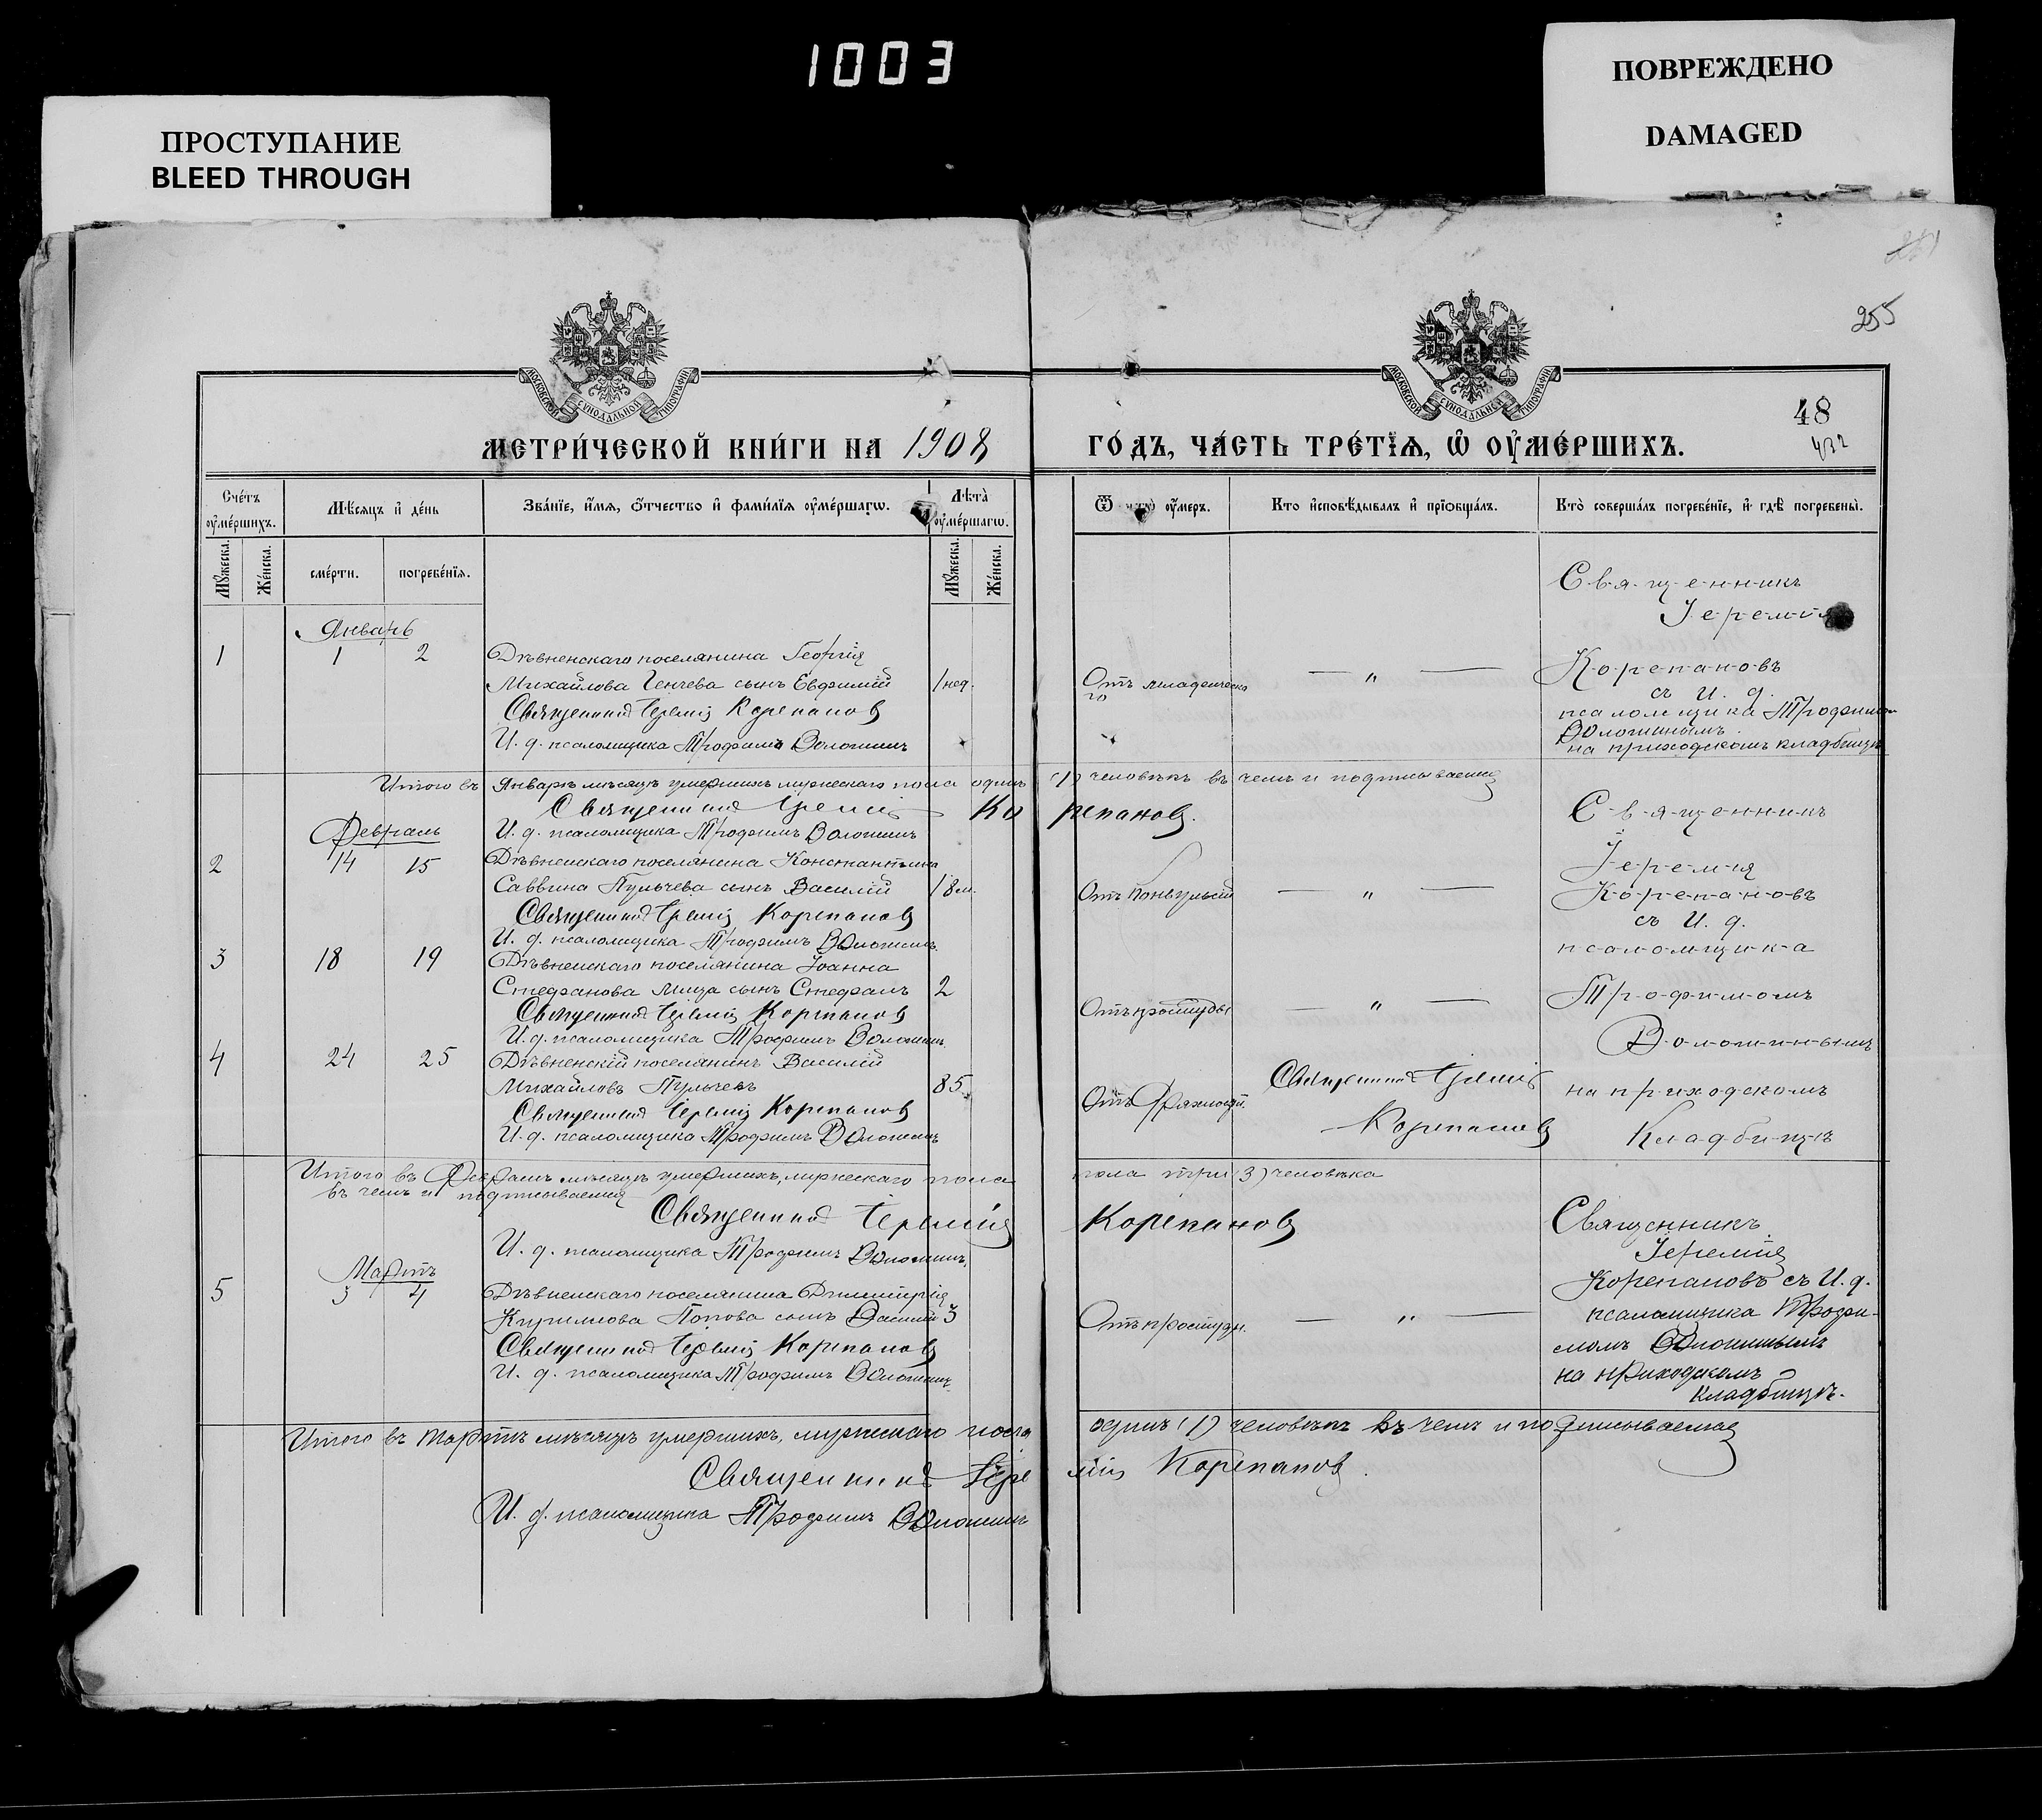 1003
ПОВРЕЖДЕНО
DAMAGED
ПРОСТУПАНИЕ
BLEED THROUGH
255
МОСКОВСКОЙ СУНОДАЛЬНОЙ ТИПОГРАФИИ
МОСКОВСКОЙ СУНОДАЛЬНОЙ ТИПОГРАФИИ
48
432
МЕТРИ́ЧЕСКОЙ КНИ́ГИ НА 1908
ГО́ДЪ, ЧА́СТЬ ТРЕ́ТЇѦ, Ѡ ОУ҆МЕ́РШИХЪ.
Сче́тъ оу҆ме́ршихъ.
Мѣ́сяцъ и҆ де́нь
Зва́нїе, и҆́мѧ, ѻ҆́тчество и҆ фами́лїѧ оу҆ме́ршагѡ.
Лѣ́та оу҆ме́ршагѡ.
Мꙋ́жеска.
Же́нска.
сме́рти.
погребе́нїѧ.
Мꙋ́жеска.
Же́нска.
Ѿ чегѡ̀ оу҆́меръ.
Кто и҆сповѣ́дывалъ и҆ прїѡбща́лъ.
Кто̀ соверша́лъ погребе́нїе, и҆ гдѣ̀ погребены̀.
Январь
1 1 2 Дѣвненскаго поселянина Георгія
Михайлова Генчева сынъ Евфимій 1 нед.
Священникъ Іеремія Корепановъ
И. д. псаломщика Трофимъ Волошинъ
Отъ младенческа
го
— „ —
Священникъ
Іеремія
Корепановъ
съ И. д.
псаломщика Трофимом
Волошинымъ
на приходскомъ кладбищѣ
Итого въ Январѣ мѣсяцѣ умершихъ мужескаго пола одинъ (1) человѣкъ въ чемъ и подписываемся
Священникъ Іеремія Корепановъ.
И. д. псаломщика Трофимъ Волошинъ
Февраль
2 14 15 Дѣвненскаго поселянина Константина
Саввина Пульчева сынъ Василій 18 м.
Священникъ Іеремія Корепановъ
И. д. псаломщика Трофимъ Волошинъ
Отъ Конвульсій
— „ —
Священникъ
Іеремія
Корепановъ
съ И. д.
псаломщика
3 18 19 Дѣвненскаго поселянина Іоанна
Стефанова сынъ Стефанъ 2
Священникъ Іеремія Корепановъ
И. д. псаломщика Трофимъ Волошинъ
Отъ простуды
— „ —
Трофимомъ
Волошинымъ
4 24 25 Дѣвненскій поселянинъ Василій
Михайловъ Пульчевъ 85
Священникъ Іеремія Корепановъ
И. д. псаломщика Трофимъ Волошинъ
Отъ Дряхлости
Священникъ Іеремія
Корепановъ
на приходскомъ
Кладбищѣ
Итого въ Февралѣ мѣсяцѣ умершихъ, мужескаго пола пола три (3) человѣка
въ чемъ и подписываемся
Священникъ Іеремія Корепановъ
И. д. псаломщика Трофимъ Волошинъ.
Мартъ
5 3 4 Дѣвненскаго поселянина Димитрія
Кириллова Попова сынъ Василій 3
Священникъ Іеремія Корепановъ
И. д. псаломщика Трофимъ Волошинъ
Отъ простуды.
— „ —
Священникъ
Іеремія
Корепановъ съ И. д.
псаломщика Трофи-
момъ Волошинымъ
на приходскомъ
кладбищѣ.
Итого въ Мартѣ мѣсяцѣ умершихъ, мужескаго пола одинъ (1) человѣкъ въ чемъ и подписываемся
Священникъ Іеремія Корепановъ.
И. д. псаломщика Трофимъ Волошинъ